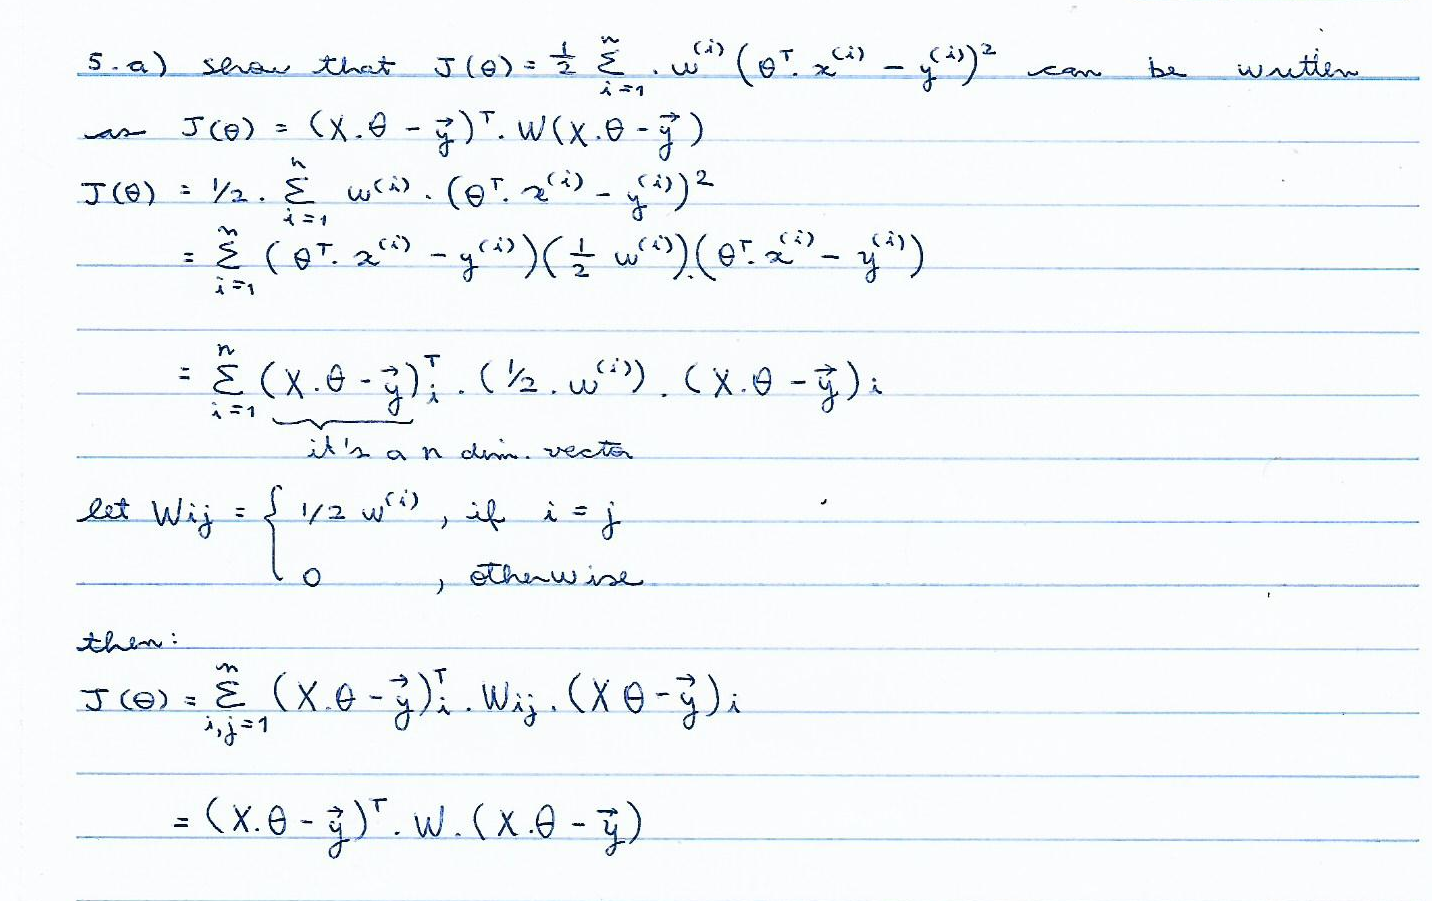 5.a) show that J(θ) = 1/2 Σ_{i=1}^{n} . w^{(i)} (θ^T. x^{(i)} − y^{(i)})^2 can be written
as J(θ) = (X.θ − y⃗)^T. W(X.θ − y⃗)
J(θ) = 1/2 . Σ_{i=1}^{n} w^{(i)} . (θ^T. x^{(i)} − y^{(i)})^2
= Σ_{i=1}^{n} (θ^T. x^{(i)} − y^{(i)})(1/2 w^{(i)}).(θ^T. x^{(i)} − y^{(i)})
= Σ_{i=1}^{n} (X.θ − y⃗)_i^T . (1/2 . w^{(i)}) . (X.θ − y⃗)_i
it's a n dim. vector
let Wij = { 1/2 w^{(i)} , if i = j
0 , otherwise
then:
J(θ) = Σ_{i,j=1}^{n} (X.θ − y⃗)_i^T . Wij . (Xθ − y⃗)_i
= (X.θ − y⃗)^T . W . (X.θ − y⃗)